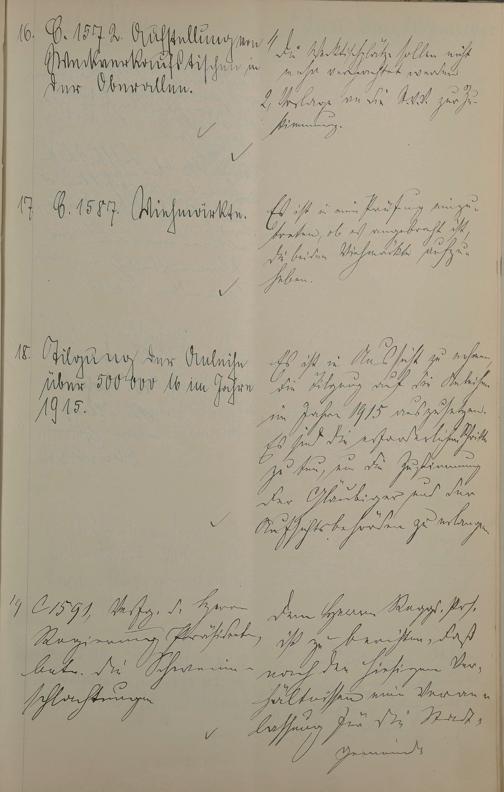 16. C. 1572. Aufstellung von
Werkverkaufstischen in
der Oberallee.
1, Die Werktischplätze sollen nicht
mehr verpachtet werden.
2, Vorlage an die St.V.V. zur Zu-
stimmung.
17. C. 1587. Viehmärkte.
Es ist in eine Prüfung einzu-
treten, ob es angebracht ist,
die beiden Viehmärkte aufzu-
heben.
18. Tilgung der Anleihe
über 500 000 M im Jahre
1915.
Es ist in Aussicht zu nehmen
die Tilgung auf die Anleihe
im Jahre 1915 auszusetzen.
Es sind die erforderlichen Schritte
zu tun, um die Zustimmung
der Gläubiger und der
Aufsichtsbehörden zu erlangen.
19 C 1591, Verfg. d. Herrn
Regierungs Präsidenten,
betr. die Schweine-
schlachtungen
Dem Herrn Reggs. Präs.
ist zu berichten, daß
nach den hiesigen Ver-
hältnissen eine Veran-
lassung für die Stadt-
gemeinde